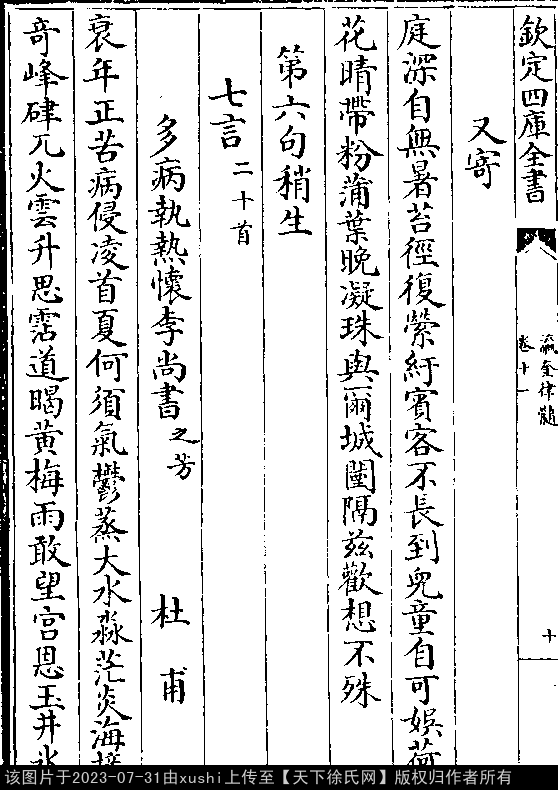 欽定四庫全書
瀛奎律髓
卷十一
十
又寄
庭深自無暑苔徑復縈紆賓客不長到兒童自可娛荷
花晴帶粉蒲葉晚凝珠與爾城闉隔茲歡想不殊
第六句稍生
七言二十首
多病執熱懷李尚書之芳
杜甫
衰年正苦病侵凌首夏何須氣鬱蒸大水淼茫炎海接
奇峰硉兀火雲升思霑道暍黃梅雨敢望宮恩玉井氷
该图片于2023-07-31由xushi上传至【天下徐氏网】版权归作者所有